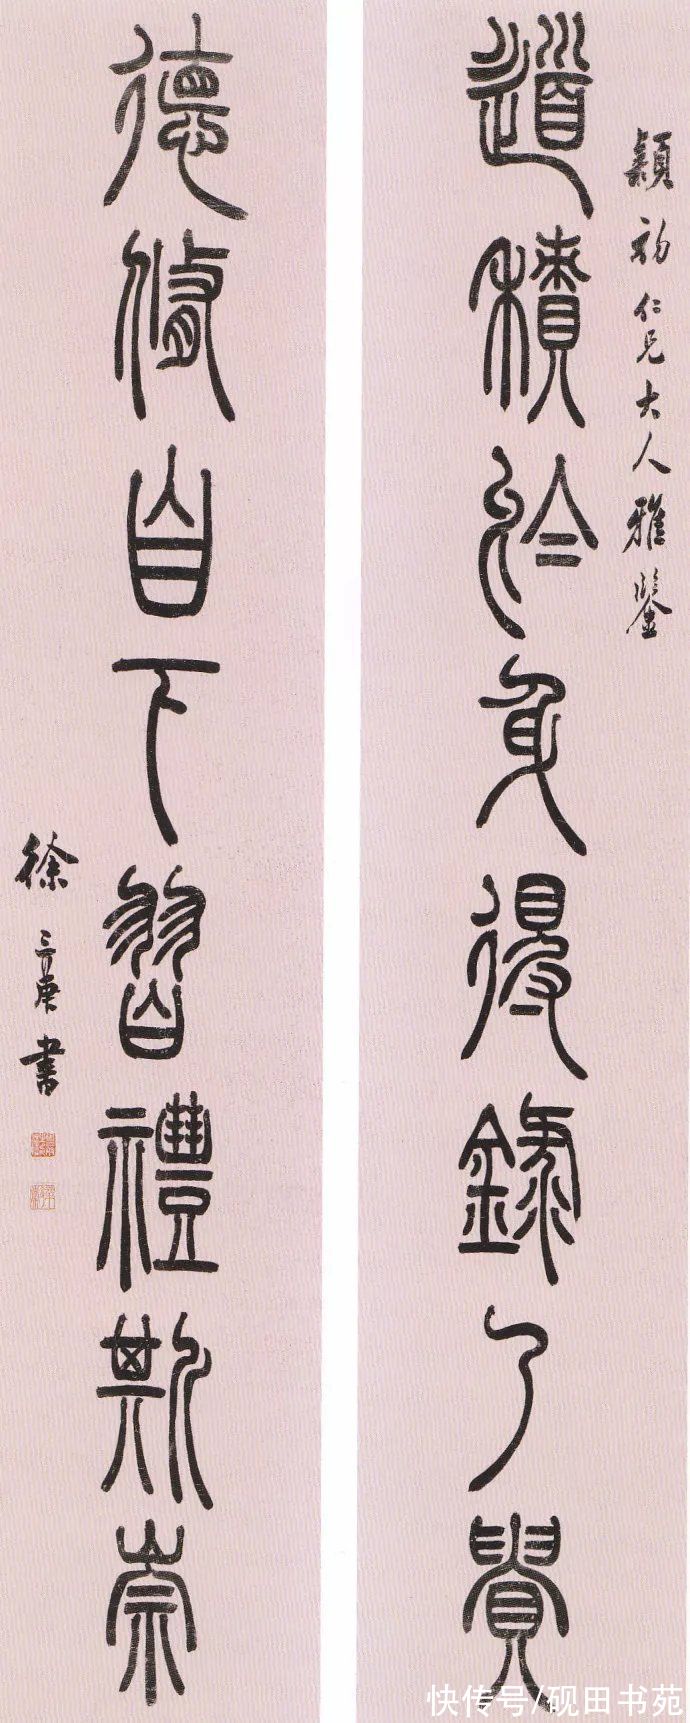 穎初仁兄大人雅鑒
道積於身得錄乃貴
德脩自下習禮斯崇
徐三庚書
快传号/砚田书苑